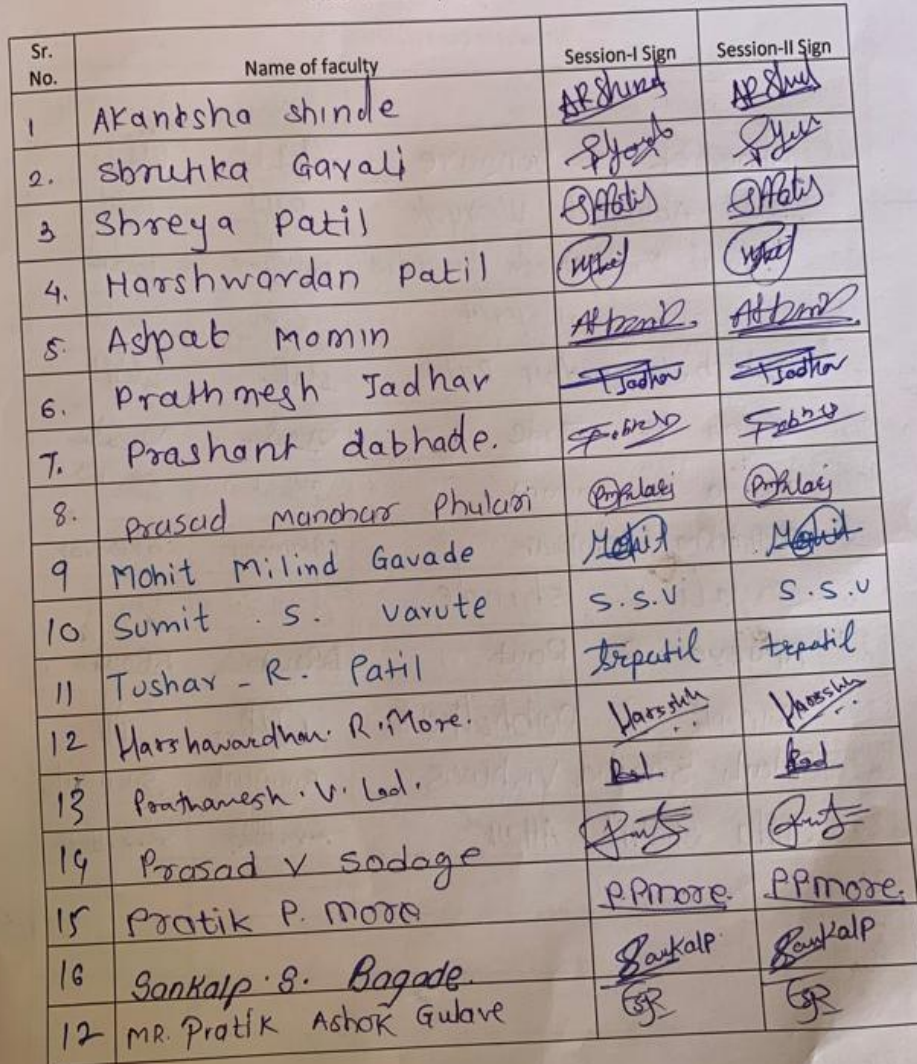 Sr. No. Name of faculty Session-I Sign Session-II Sign
1 Akanksha Shinde ARShind ARShind
2. Shrutika Gavali
3 Shreya Patil SAPatil SAPatil
4. Harshwardan Patil
5. Ashpak Momin
6. Prathmesh Jadhav Jadhav Jadhav
7. Prashant dabhade.
8. Prasad Manohar Phulari PmPhulari PmPhulari
9 Mohit Milind Gavade Mohit Mohit
10 Sumit . S. Varute S.S.V S.S.V
11 Tushar - R. Patil trpatil trpatil
12 Harshawardhan. R. More.
13 Prathamesh. V. Lad.
14 Prasad V Sadage
15 Pratik P. More P.P.more. P.P.more.
16 Sankalp. S. Bagade. Sankalp Sankalp
12 MR. Pratik Ashok Gulave